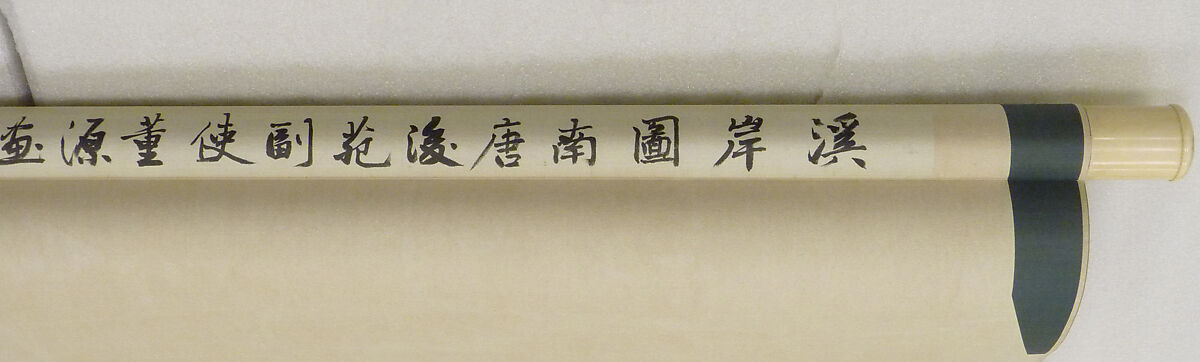 溪岸圖南唐後苑副使董源畫